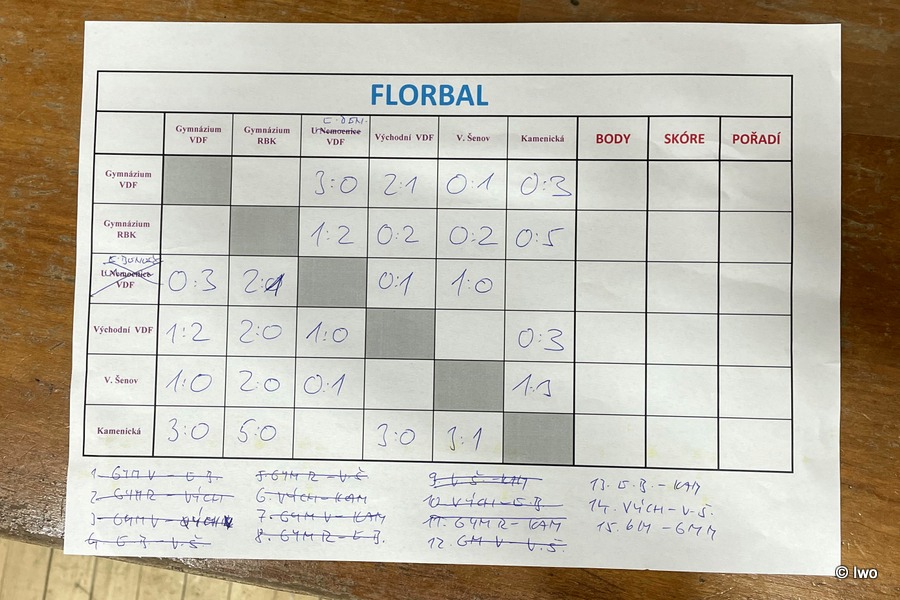 FLORBAL
Gymnázium VDF Gymnázium RBK E. BEN. U Nemocnice VDF Východní VDF V. Šenov Kamenická BODY SKÓRE POŘADÍ
Gymnázium VDF 3:0 2:1 0:1 0:3
Gymnázium RBK 1:2 0:2 0:2 0:5
U Nemocnice VDF 0:3 2:1 0:1 1:0
Východní VDF 1:2 2:0 1:0 0:3
V. Šenov 1:0 2:0 0:1 1:3
Kamenická 3:0 5:0 3:0 3:1
1. GYM V - E.B. 5. GYM R - V.Š 9. V.Š. - KAM 13. E.B. - KAM
2. GYM R - VÝCH 6. VÝCH - KAM 10. VÝCH - E.B. 14. VÝCH - V.Š.
3. GYM V - VÝCH 7. GYM V - KAM 11. GYM R - KAM 15. GYM - GYM
4. E B - V.Š. 8. GYM R - E B. 12. GM V - V.Š.
© Iwo